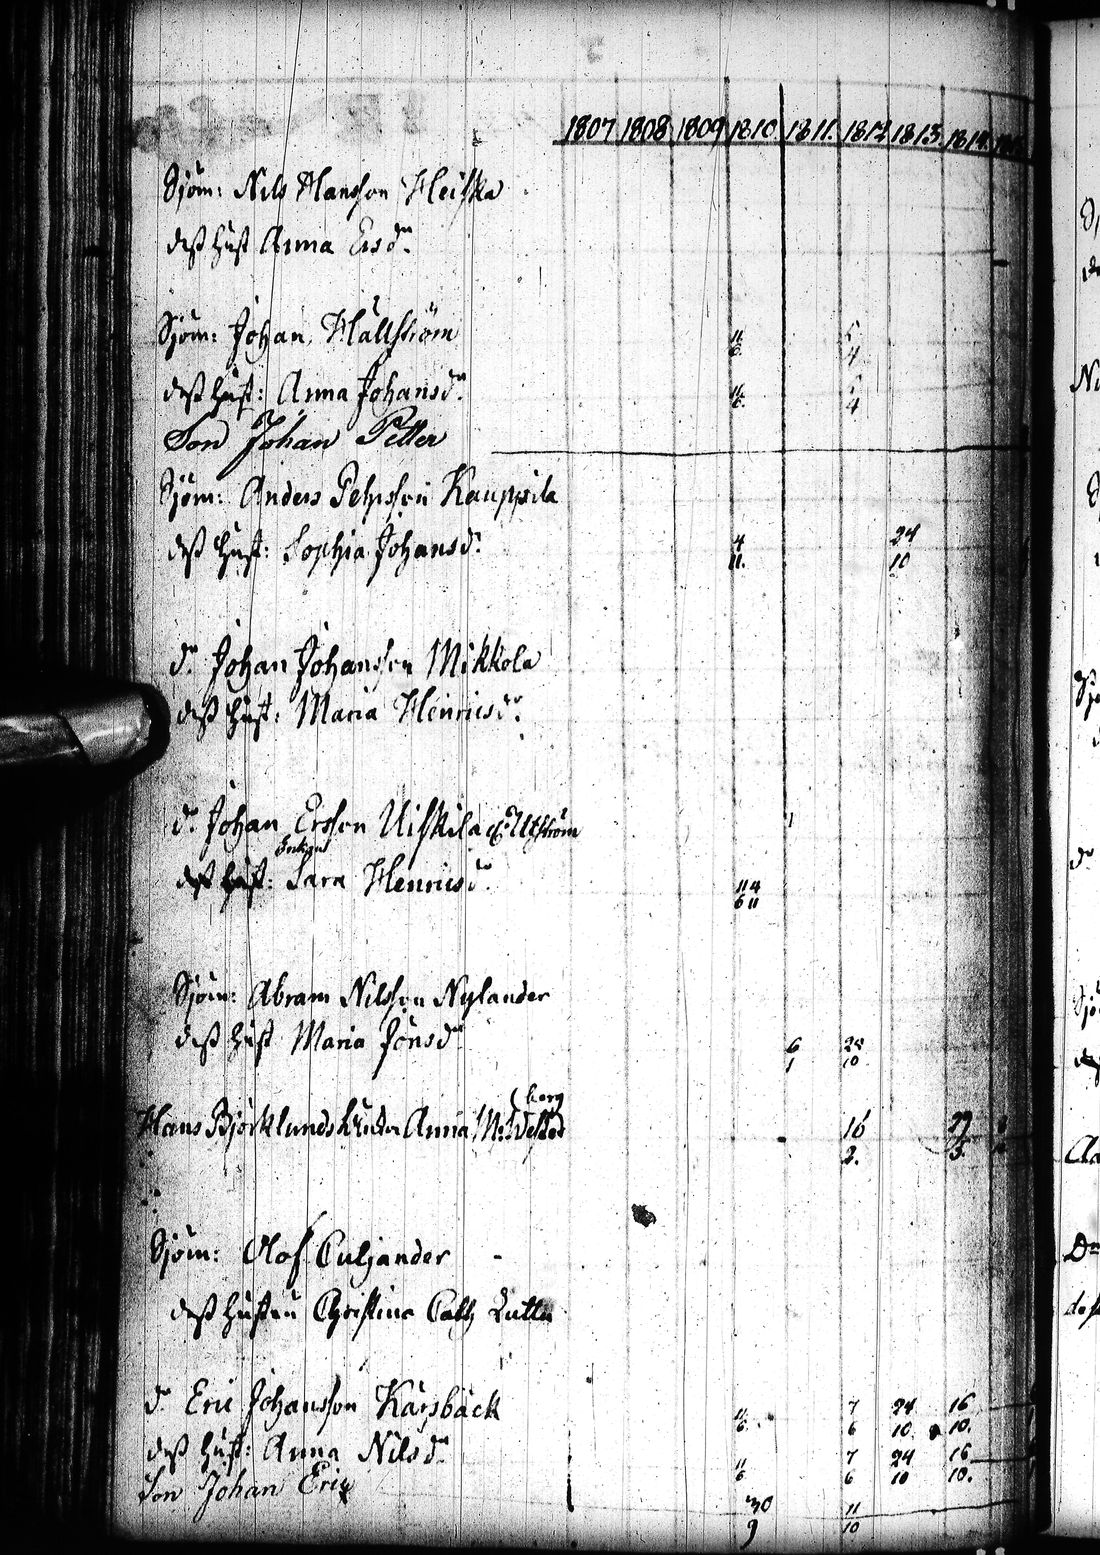 1807 1808 1809 1810 1811. 1812 1813. 1814.
Sjöm: Nils Hansson Heiska
dess Hust Anna Ersdr
Sjöm: Johan Hällström 11/6 5/4
dess Hust: Anna Johansdr 11/6. 5/4
Son Johan Petter
Sjöm: Anders Pehrsson Kauppila
dess Hust: Sophia Johansdr 4/11. 24/10
do Johan Johansson Mikkola
dess Hust: Maria Henricsdr
do Johan Ersson Uiskila Utström
Enkan
dess Hust: Sara Henricsdr 11/6 4/11
Sjöm: Abram Nilsson Nylander
dess Hust Maria Jönsdr 6/1 28/10
berg
Hans Björklunds Enka Anna M: Wester 16/2. 29/5.
Sjöm: Olof Culjander -
dess Hustru Christina Cath
do Eric Johansson Kårsbäck 11/6. 7/6 24/10 16/10.
dess Hust: Anna Nilsdr 11/6 7/6 24/10 16/10.
Son Johan Eric 30/9 11/10